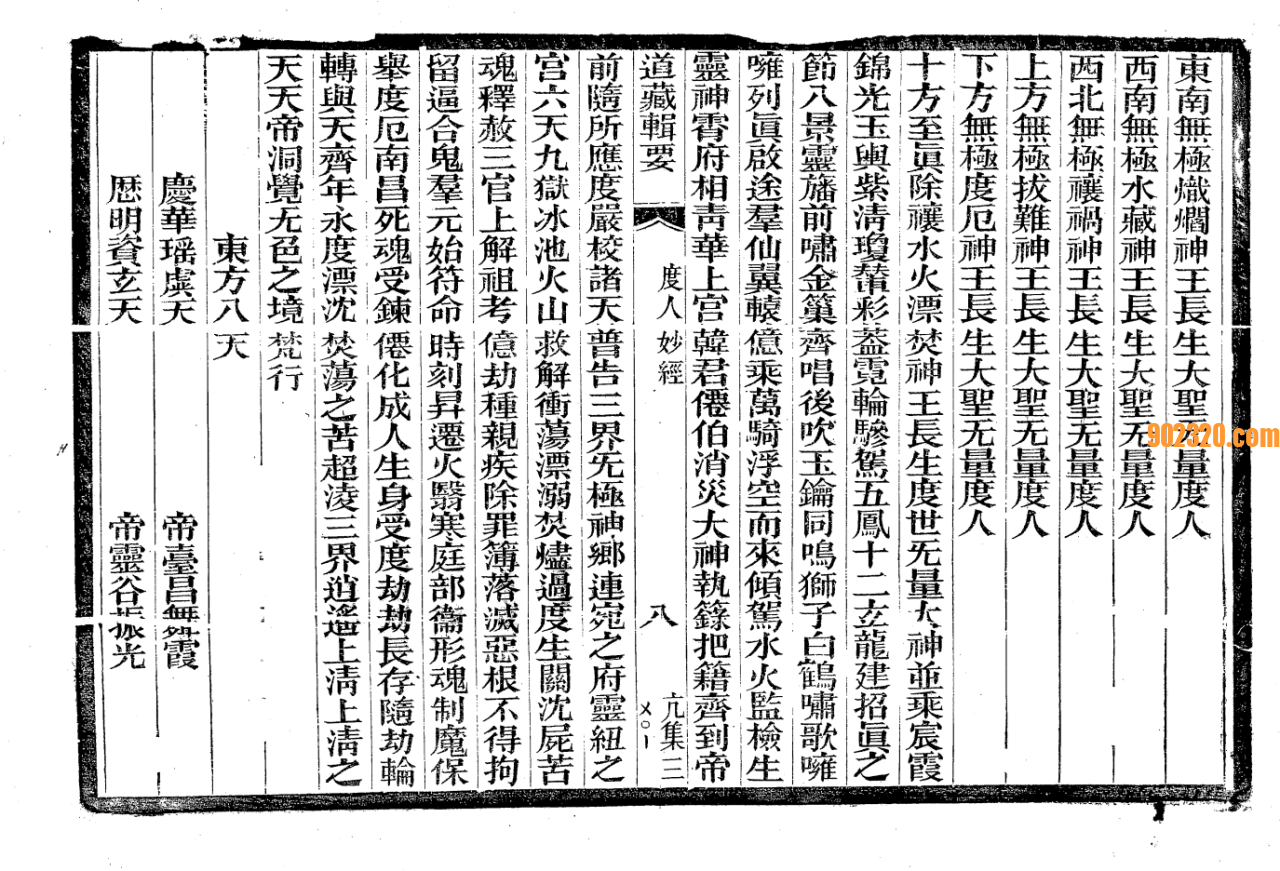 東南無極熾爓神王長生大聖无量度人
西南無極水藏神王長生大聖无量度人
西北無極禳禍神王長生大聖无量度人
上方無極拔難神王長生大聖无量度人
下方無極度厄神王長生大聖无量度人
十方至眞除禳水火漂焚神王長生度世无量大神並乘宸霞
錦光玉輿紫淸瓊輦彩蓋霓輪驂駕五鳳十二玄龍建招眞之
節八景靈旛前嘯金箓齊唱後吹玉鑰同鳴獅子白鶴嘯歌嗈
嗈列眞啟途羣仙翼轅億乘萬騎浮空而來傾駕水火監檢生
靈神霄府相靑華上宮韓君僊伯消災大神執籙把籍齊到帝
道藏輯要 度人妙經 八 亢集三
前隨所應度嚴校諸天普告三界无極神鄉連宛之府靈紐之
宮六天九獄冰池火山救解衝蕩漂溺焚爐過度生關沈屍苦
魂釋赦三官上解祖考億劫種親疾除罪簿落滅惡根不得拘
留逼合鬼羣元始符命時刻昇遷火翳寒庭部衞形魂制魔保
舉度厄南昌死魂受鍊僊化成人生身受度劫劫長存隨劫輪
轉與天齊年永度漂沈焚蕩之苦超淩三界逍遙上淸上淸之
天天帝洞覺无色之境梵行
東方八天
慶華瑶虞天 帝臺昌無霞
歷明資玄天 帝靈谷振光
902320.com